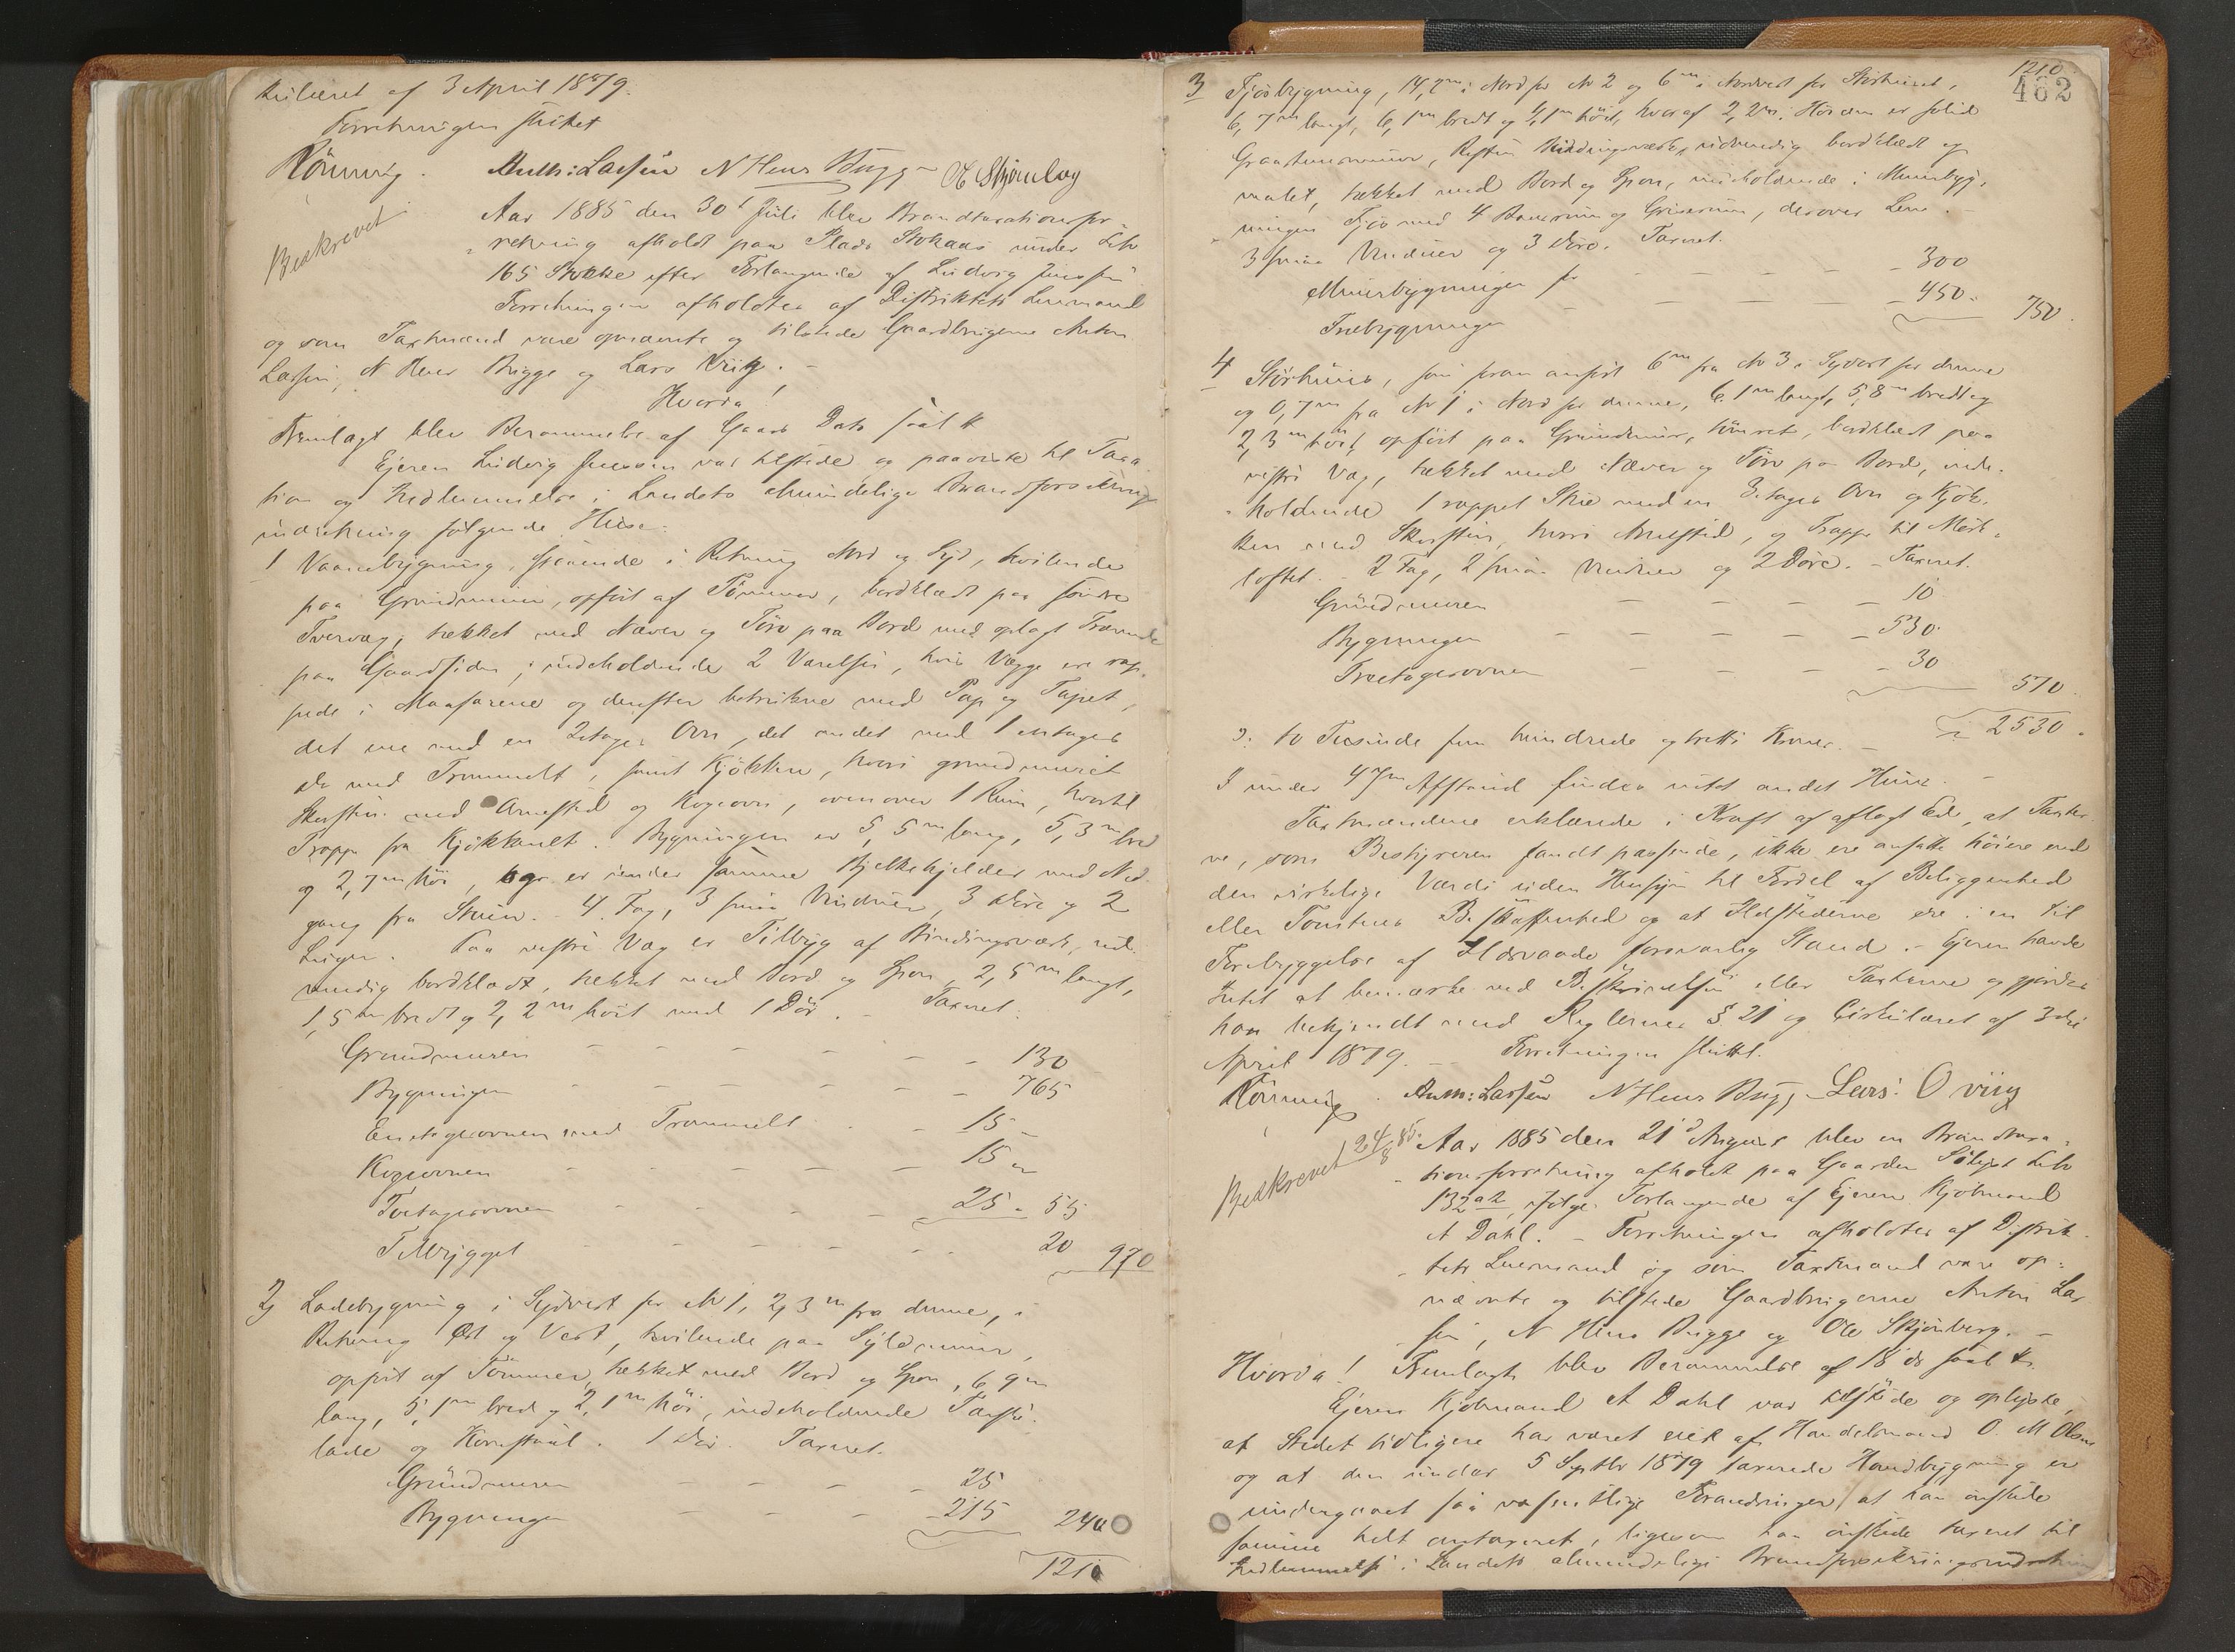 kulæret af 3 April 1879.
Forretningen sluttet
Rönning. Anth: Lassen N Hens Bugge O Skjönberg
Beskrevet
Aar 1885 den 30t Juli blev Brandtaxationsfor-
retning afholdt paa Plads Stokaas under Lb
165 Stokke efter Forlangende af Ludvig Jenssen
Forretningen afholdtes af Distriktets Lensmand
og som Taxtmænd vare opnævnte og tilstede Gaardbrugerne Anton
Lassen, N Hens Bugge og Lars Viig.
Hvorda!
Fremlagt blev Berammelse af Gaars Dato saal #
Ejeren Ludvig Jenssen var tilstede og paaviste til Taxa
tion og Indlemmelse i Landets almindelige Brandforsikrings
indretning følgende Huse:
1 Vaanebygning, staaende i Retning Nord og Syd, hvilende
paa Grundmuur, opført af Tømmer, bordklædt paa søndre
Tvervæg, tækket med Næver og Törv paa Bord med oplagt
paa Gaardsiden; indeholdende 2 Værelser, hvis Vægge ere rap-
pede i Maafarene og derefter betrukne med Pap og Tapet,
det ene med en 2etages Ovn, det andet med 1 etages
do med Trommelt, samt Kjökken, hvori grundmuret
Skorsten med Arnested og Kogeovn, ovenover 1 Rum, hvortil
Trappe fra Kjökkenet. Bygningen er 5,5 m lang, 5,3 m bred
og 2,7 m höi, og er under samme Kjelder med Ned-
gang fra Stuen. 4 Fag, 3 smaa Vinduer, 3 Döre og 2
Luger. Paa vestre Væg er Tilbyg af Bindingsværk, ud-
vendig bordklædt, tækket med Bord og Spon, 2,5 m langt,
1,5 m bredt og 2,2 m höit med 1 Dör. Taxeret:
Grundmuren 130
Bygningen 765
Enetagesovnen med Trommelt 15
Kogeovnen 15
Toetagesovnen 25 55
Tilbygget 20 970
2 Ladebygning i Sydvest for No 1, 2,3 m fra denne, i
Retning Øst og Vest, hvilende paa Syldmuur,
opført af Tömmer, tækket med Bord og Spon, 6,9 m
lang, 5,1 m bred og 2,1 m höi, indeholdende
lade og Kornstaal. 1 Dör. Taxeret.
Grundmuren 25
Bygningen 215 240
1210
1210
462
3 Fjösbygning, 14,2 m i Nord for No 2 og 6 m i Nordvest for Störhuset,
6,7 m langt, 6,1 m bredt og 4,1 m höit, hvoraf 2,2 m i Höiden er solid
Graastensmuur, Resten Bindingsværk, udvendig bordklædt og
malet, tækket med Bord og Spon, indeholdende i Muurbyg-
ningen Fjös med 4 Baasrum og Griserum, derover Lem.
3 smaa Vinduer og 3 Döre. Taxeret.
Muurbygningen for 300
Træbygningen 450 750
4 Störhuus, som foran anført 6 m fra No 3 i Sydvest for denne
og 0,7 m fra No 1 i Nord for denne, 6,1 m langt, 5,8 m bredt og
2,3 m höit, opfört paa Grundmuur, tömret, bordklædt paa
vestre Væg, tækket med Næver og Törv paa Bord, inde-
holdende 1 rappet Stue med en 3etages Ovn og Kjök-
ken med Skorsten, hvori Arnested, og Trappe til Mörk-
loftet. 2 Fag, 2 smaa Vinduer og 2 Döre. Taxeret.
Grundmuren 10
Bygningen 530
Treetagesovnen 30
570
2530
ɔ: to Tusinde fem hundrede og tretti Kroner.
I under 47 m Afstand findes intet andet Huus.
Taxtmændene erklærede i Kraft af aflagt Ed, at Taxter-
ne, som Bestyreren fandt passende, ikke ere ansatte höiere end
den virkelige Værdi uden Hensyn til Fordel af Beliggenhed
eller Tomtens Beskaffenhed og at Ildstederne ere i en til
Forebyggelse af Ildsvaade forsvarlig Stand. Ejeren havde
Intet at bemærke ved Beskrivelsen eller Taxterne og gjordes
han bekjendt med Reglernes § 21 og Cirkulæret af 3die
April 1879. Forretningen sluttet.
Rönning. Anth: Lassen N Hens Bugge Lars: O viig
Beskrevet 24/8 85.
Aar 1885 den 21de August blev en Brandtaxa-
tionsforretning afholdt paa Gaarden Lb
132 a2 ifölge Forlangende af Ejeren Kjöbmand
A Dahl. Forretningen afholdtes af Distrik-
tets Lensmand og som Taxtmænd vare op-
nævnte og tilstede Gaardbrugerne Anton Las
sen, N Hens Bugge og Ole Skjönberg.
Hvorda! Fremlagt blev Berammelse af 18 ds saal #.
Ejeren Kjöbmand A Dahl var tilstede og oplyste,
at Stedet tidligere har været eiet af Handelsmand O. M Olsen
og at den under 5 Septbr 1879 taxerede Hovedbygning er
undergaaet saa væsentlige Forandringer, at han önskede
samme helt omtaxeret, ligesom han önskede taxeret til
Indlemmelse i Landets almindelige Brandforsikringsindretning